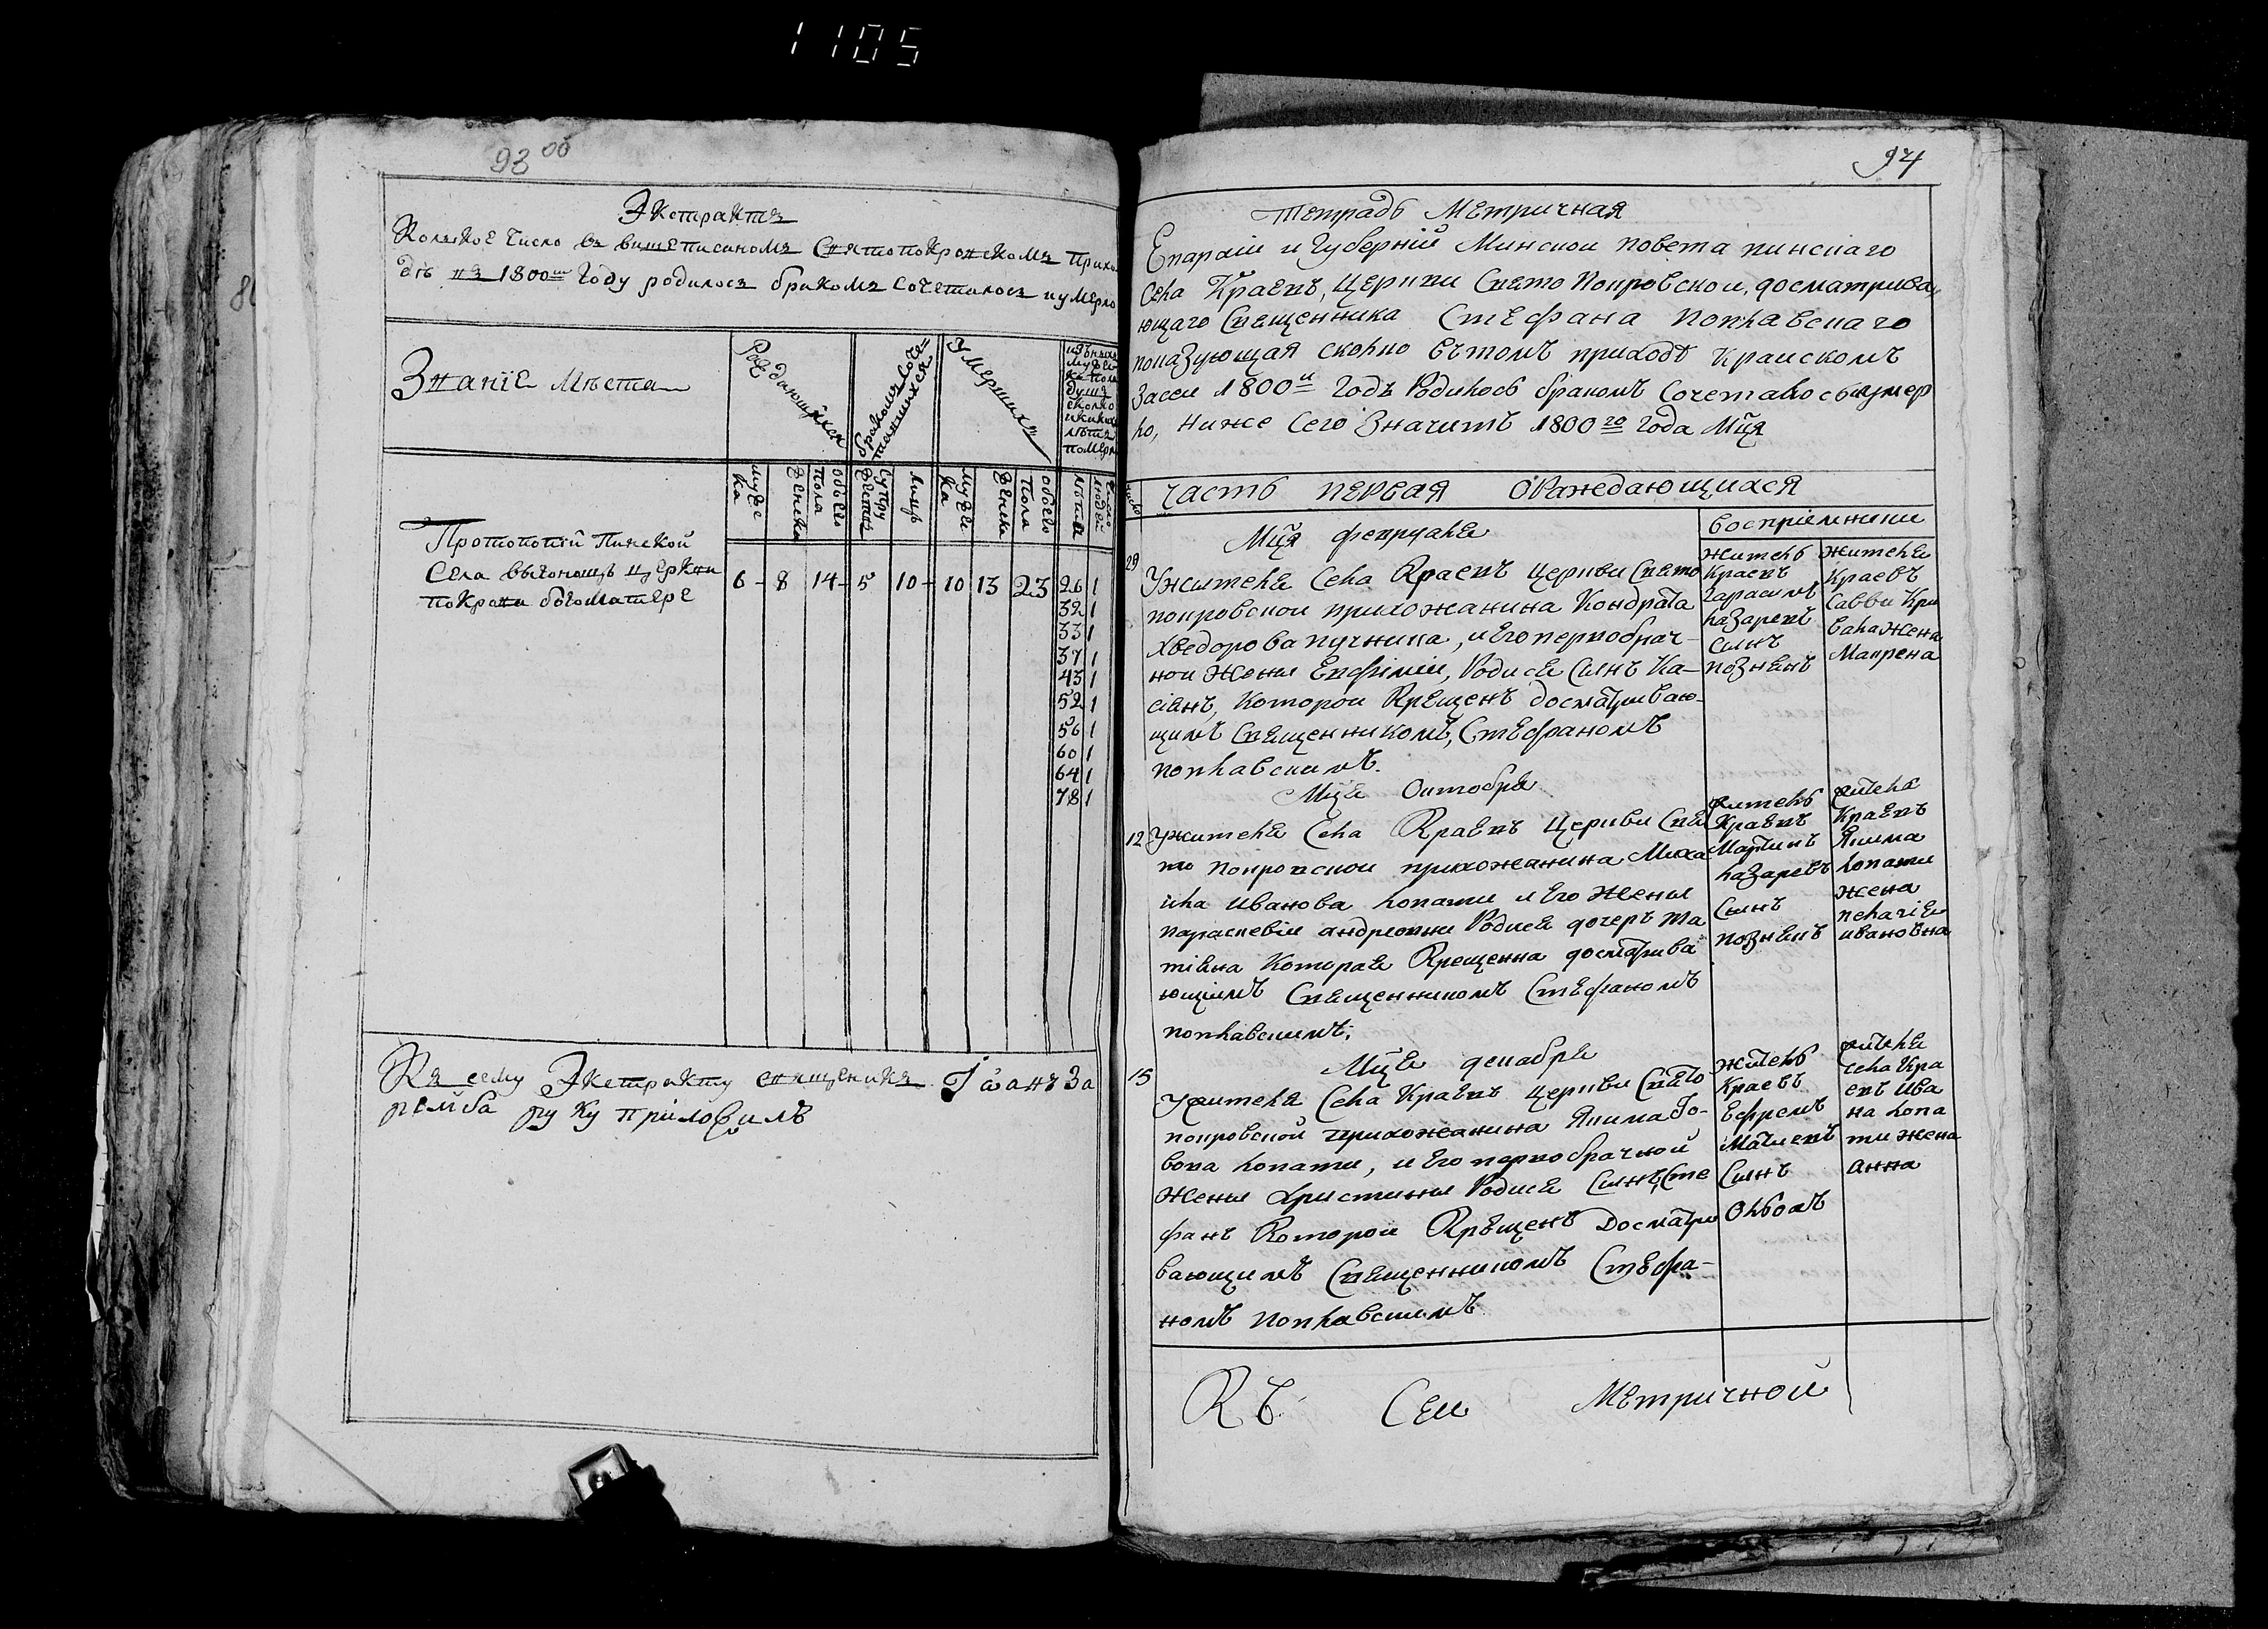 1105
93 об
Экстрактъ
Коликое число въ вишеписаномъ Святопокровскомъ прихо
дѣ въ 1800м Году родилося бракомъ сочеталося и умерло
Званїе мѣста
Раждающихся
бракомъ соче=
тавшихся
Умершихъ
душъ
сколко
лѣтъ
помер
мужес
ка
женска
обоего
пола
супру
жествъ
лицъ
мужес
ка
женска
пола
обоего
лѣта
число
людей
Протопопїи Пинской
Села Вичовощъ церкви
покрови богоматере
6 - 8 14 - 5 10 - 10 13 23 26 1
32 1
33 1
37 1
43 1
52 1
56 1
60 1
64 1
78 1
Къ сему Экстракту священикъ Іоаннъ За
ремба руку приложилъ
94
Тетрадь Метричная
Епархіи и Губерніи Минской повета пинскаго
Села Краевъ, Церкви Свято Покровской, досматрива
ющаго Священника Стефана Поплавскаго
показующая сколко вътомъ приходѣ Краискомъ
Засеи 1800й Годъ Родилось бракомъ Сочеталось Иумер
ло, Ниже Сего Значитъ 1800го Года Мця
Число
Часть первая О Раждающихся
Восприемники
Мця февруаля
29
Ужителя Села Краевъ Церкви Свято
покровской прихожанина Кондрата
Хведорова пучника, и Его первобрач-
ной Жены Евфиміи, Родися Сынъ Ка-
сіянъ, Которои Крещенъ досматриваю-
щимъ Священникомъ, Стефаномъ
поплавскимъ.
житель
Краевъ
Гарасимъ
Лазаревъ
сынъ
познякъ
жителя
Краевъ
Савви Кри
вала жена
Макрена
Мця Октобря
12
Ужителя Села Краевъ Церкви Свя
то покровской прихожанина Миха
ила Иванова Лопати и Его Жены
Параскевіи андреовни Родися дочеръ Та
тіяна Которая Крещенна досматрива
ющимъ Священникомъ Стефаномъ
поплавскимъ;
житель
Краевъ
Мартинъ
Лазаревъ
Сынъ
познякъ
жителя
Краевъ
Якима
Лопати
жена
пелагія
ивановна
Мця декабря
15
Ужителя Села Краевъ Церкви Свято
покровской прихожанина Якима Іо-
вова Лопати, и Его первобрачной
Жены Христины Родися Сынъ, Сте
фанъ Которои Крещенъ Досматри
вающимъ Священникомъ Стефа-
номъ Поплавскимъ
житель
Краевъ
Ефремъ
Матиевъ
Сынъ
жителя
села Кра
евъ Ива
на Лопа
ти жена
анна
Къ Сеи Метричной